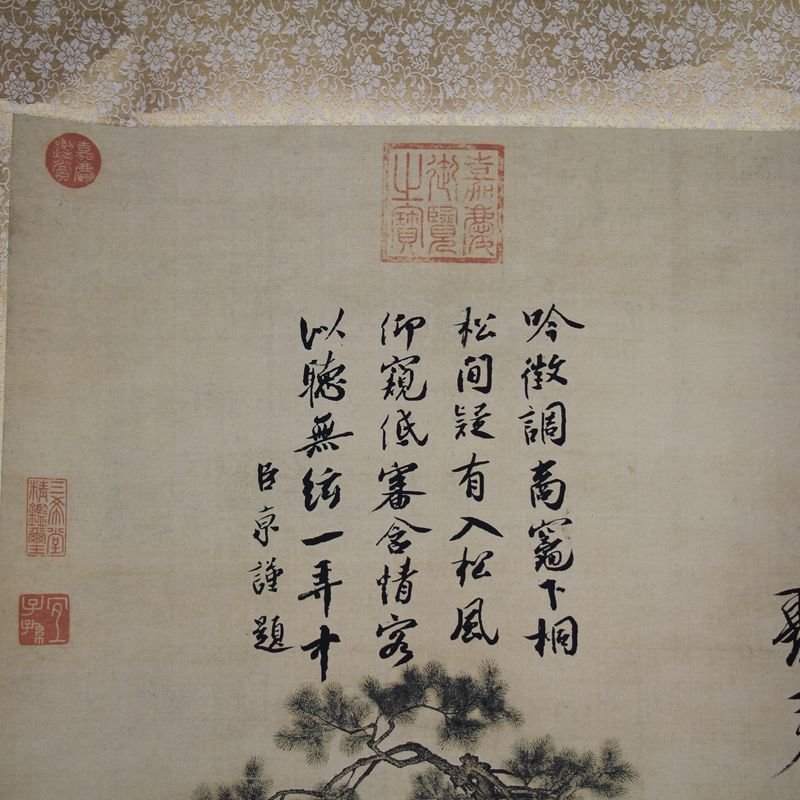 嘉慶御覽之寶
吟徵調商竈下桐
松間疑有入松風
仰窺低審含情客
以聽無絃一弄中
臣京謹題
嘉慶鑑賞
三希堂精鑑璽
宜子孫